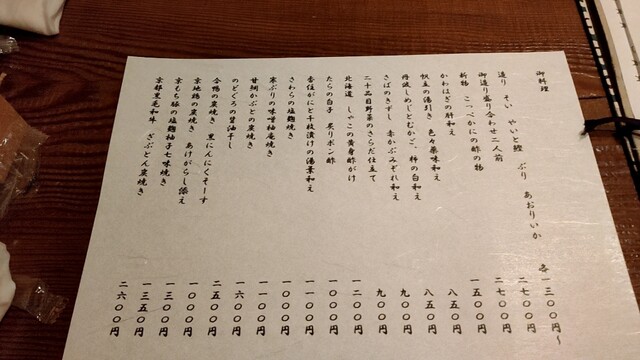 御料理
造り そい やいと鰹 ぶり あおりいか 各一三〇〇円〜
御造り盛り合わせ二人前 二七〇〇円
新物 こっぺかにの酢の物 二七〇〇円
かわはぎの肝和え 一五〇〇円
帆立の湯引き 色々薬味和え 八五〇円
丹波しめじとむかご、柿の白和え 八五〇円
さばのきずし 赤かぶみぞれ和え 九〇〇円
二十品目野菜のさらだ仕立て 九〇〇円
北海道 しゃこの黄身酢がけ 一二〇〇円
たらの白子 炙りポン酢 一〇〇〇円
香住がにと千枚漬けの湯葉和え 一一〇〇円
さわらの塩麹焼き 一〇〇〇円
寒ぶりの味噌柚庵焼き 一一〇〇円
甘鯛かぶとの炭焼き 一〇〇〇円
のどぐろの醤油干し 一六〇〇円
合鴨の炭焼き 黒にんにくそーす 二五〇〇円
京地鶏の炭焼き あけがらし添え 一〇〇〇円
京もち豚の塩麹柚子七味焼き 一三〇〇円
京都黒毛和牛 ざぶとん炭焼き 一三五〇円
二六〇〇円